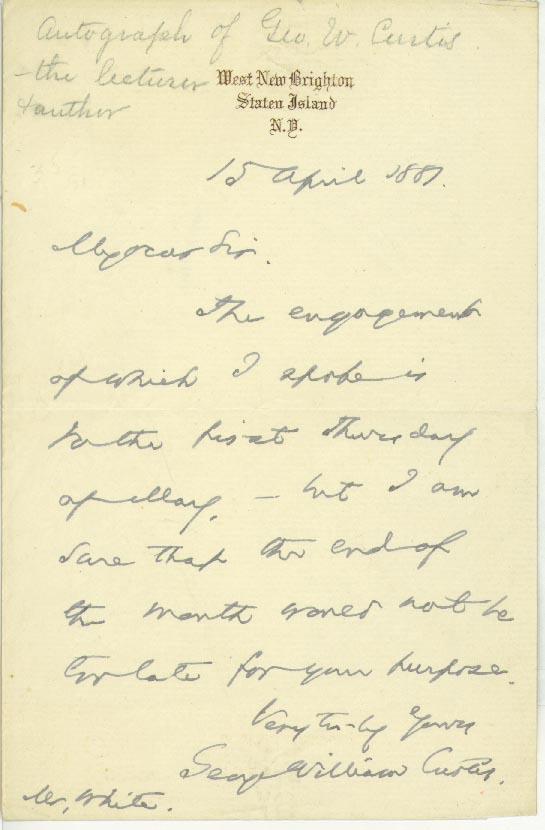 Autograph of Geo. W. Curtis
the lecturer
& author
West New Brighton
Staten Island
N.Y.
15 April 1881.
My dear Sir.
The engagement
of which I spoke is
for the first Thursday
of May, — but I am
sure that the end of
the month would not be
too late for your purpose.
Very truly Yours
George William Curtis.
Mr. White.